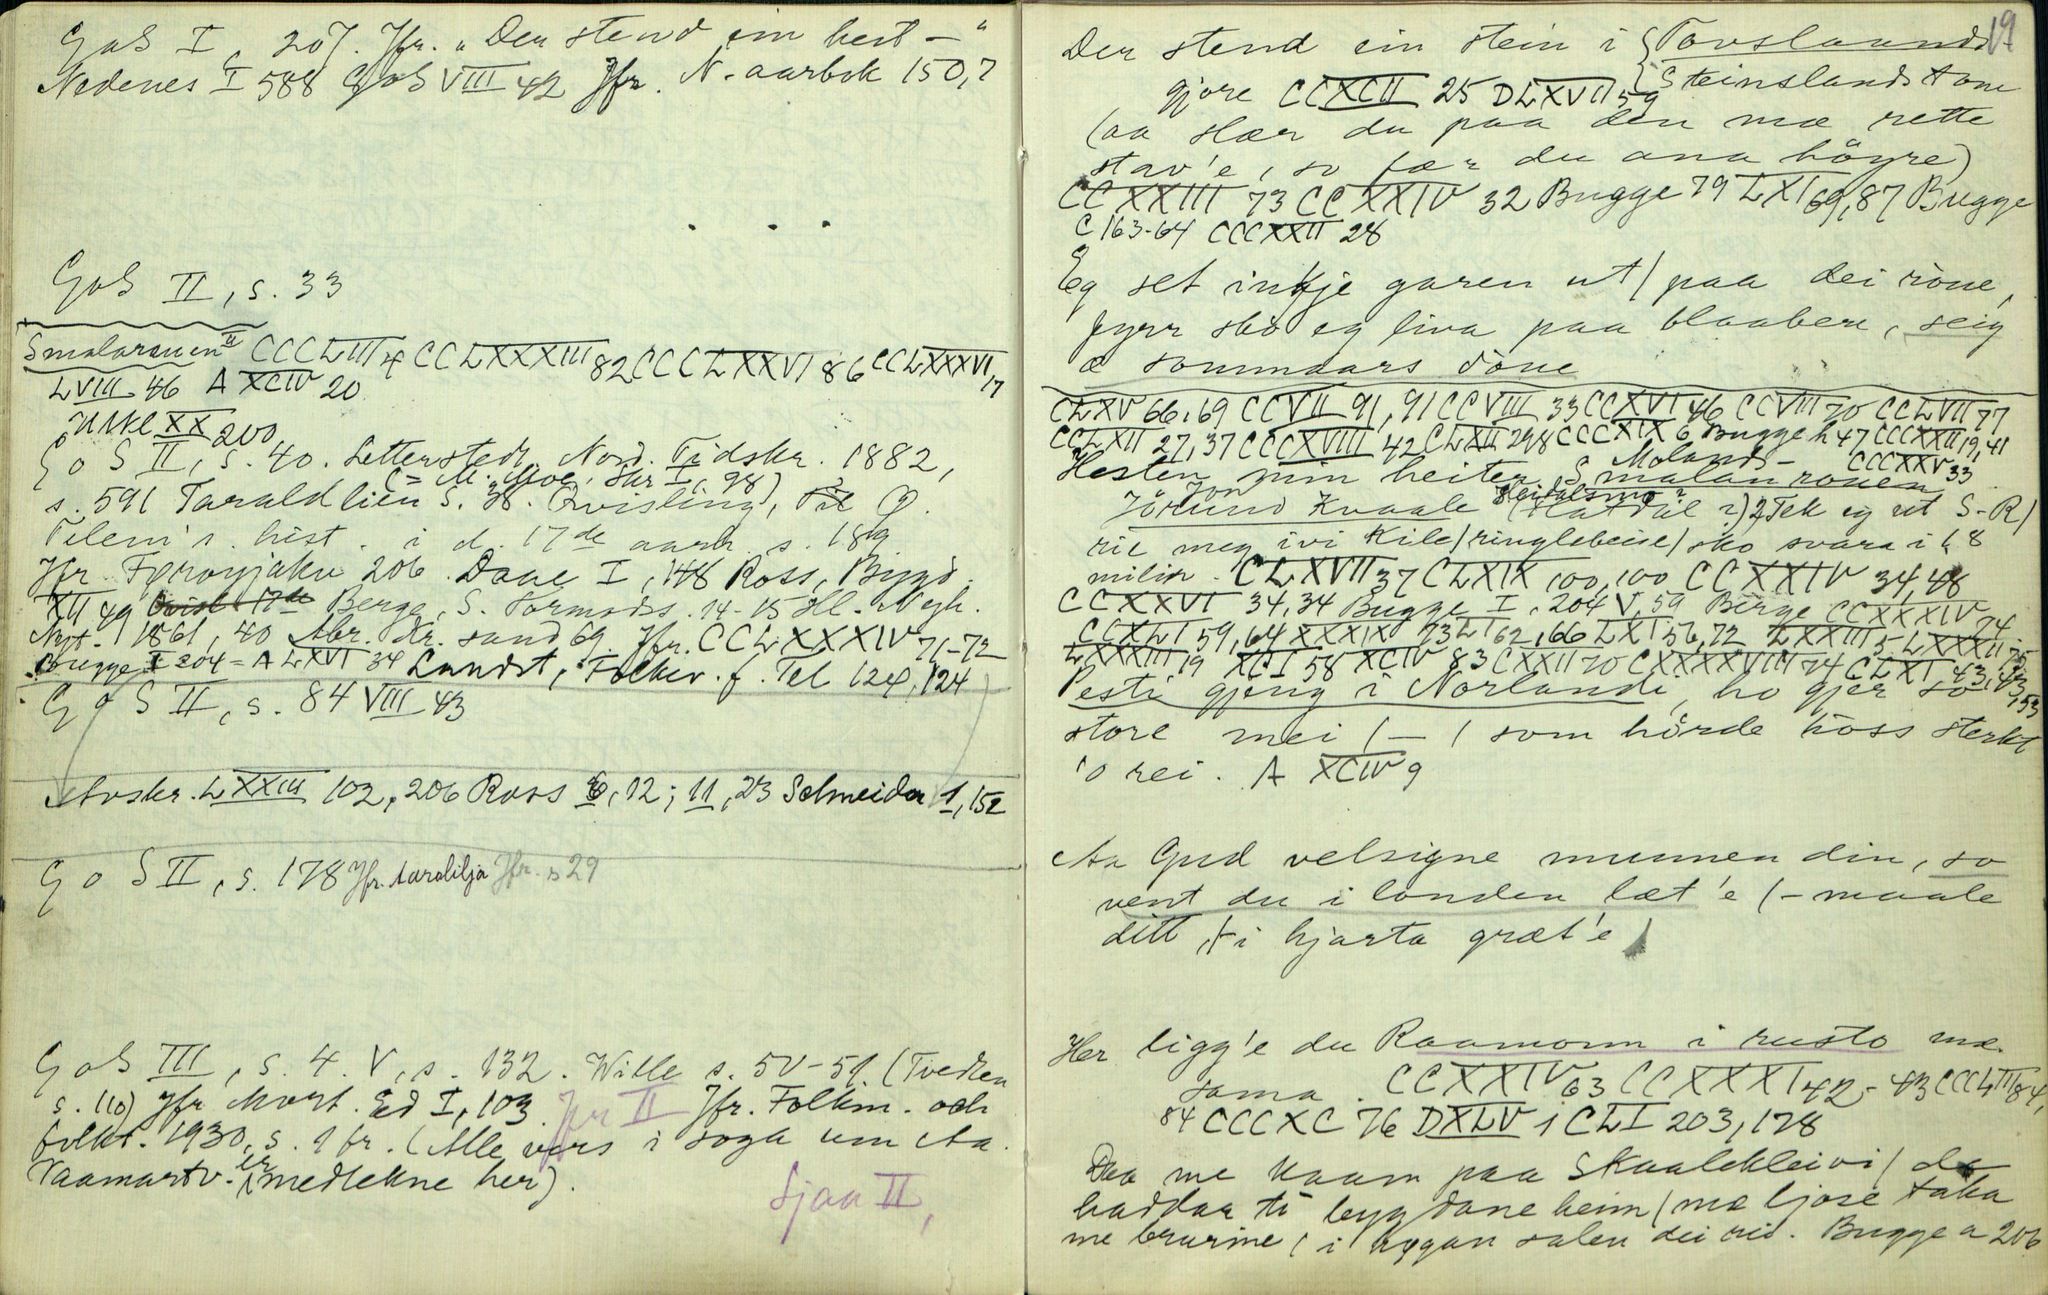 GoS I, 207. Jfr. "Der stend ein hest —"
Nedenes I 588 GoS VIII 42 Jfr. N. aarbok 150,7
GoS II, s. 33
Smalarauen II CCCLIII 4 CCLXXXIII 82 CCCLXXVI 86 CCLXXXVI 17
LVIII 46 A XCIV 20
XX 200
GoS II, s. 40. Letterstedt, Nord. Tidskr. 1882,
(= M. Moe, Skr I, 98)
s. 591 Taraldlien S. 38. Qvisling,
Telem's hist. i d. 17de aarh. s. 189
Jfr Færoyjakv 206. Daae I, 148 Ross, Bygd.
XII 49 Berge, S. Tormods. 14-15 Nyh.
1861, 40 Kr. sand 69. Jfr. CCLXXXIV 71-72
Bugge I 204 = A LXVI 34 Lundst, Folkev. f. Tel 124, 124
GoS II, s. 84 VIII 43
Avskr. LXXIII 102, 206 Ross 6, 12; 11, 23 Schneider 1, 152
GoS II, s. 178 Jfr. Aarolilja Jfr. s 29
GoS III, s. 4. V, s. 132. Wille s. 50-51 (Tvedten
s. 110) Jfr. Mort. Ed I, 103 Jfr II Jfr. Folkm. och
folkt. 1930, s. 9 fr. (Alle vers i soga um Aa.
Vaamartv. er medtekne her).
Sjaa II,
19
Der stend ein stein i { Tovslaands
{ Steinslandstone
gjore CCXCII 25 DLXVII 59
(aa slær du paa den mæ rette
stav'e, so fær du ana höyre)
CCXXIII 73 CCXXIV 32 Bugge 79 LXI 69, 87 Bugge
C 163-64 CCCXXII 28
Eg set inkje garen ut / paa dei röne,
fyrr sko eg liva paa blaabere, seig
æ sommaars döne
CLXV 66, 69 CCVII 91, 91 CCVIII 33 CCXVI 46 CCVIII 70 CCLVII 77
CCLXII 27, 37 CCCXVIII 42 CLXII 298 CCCXIX 6 Bugge h 47 CCCXXII 19, 41
Molands- CCCXXV 33
Hesten min heiter Smalan rouen
Jon
Jörund Kvaale (Flatdal ?) 2 Tek eg ut S-R /
rie meg ivi Kile / ringlebeise / sko svara i 18
milir. CLXVII 37 CLXIX 100, 100 CCXXIV 34, 48
CCXXVI 34, 34 Bugge I, 204 V, 59 Berge CCXXXIV 74
CCXLI 59, 64 XXXIX 73 LI 62, 66 LXI 56, 72 LXXIII 5 LXXXII 75
LXXXIII 19 XCI 58 XCIV 83 CXXII 70 CXXXXVIII 74 CLXI 43, 43, 53
Pesti gjeng i Norlandi, ho gjer so
store mei / — / som hörde hoss sterkt
'o rei. A XCIV 9
Aa Gud velsigne munnen din, so
vent du i londen læt'e / - maale
ditt, / - i hjarta græt'e
Her ligg'e du Raamonn i rusto mæ
sama. CCXXIV 63 CCXXXI 42-43 CCCLIII 84,
84 CCCXC 76 DXLV 1 CLI 203, 178
Daa me kaam paa Skaalekleivi / da
haddaa ti bygdane heim / mæ ljose taka
me brurine / i högan salen dei rid. Bugge a 206